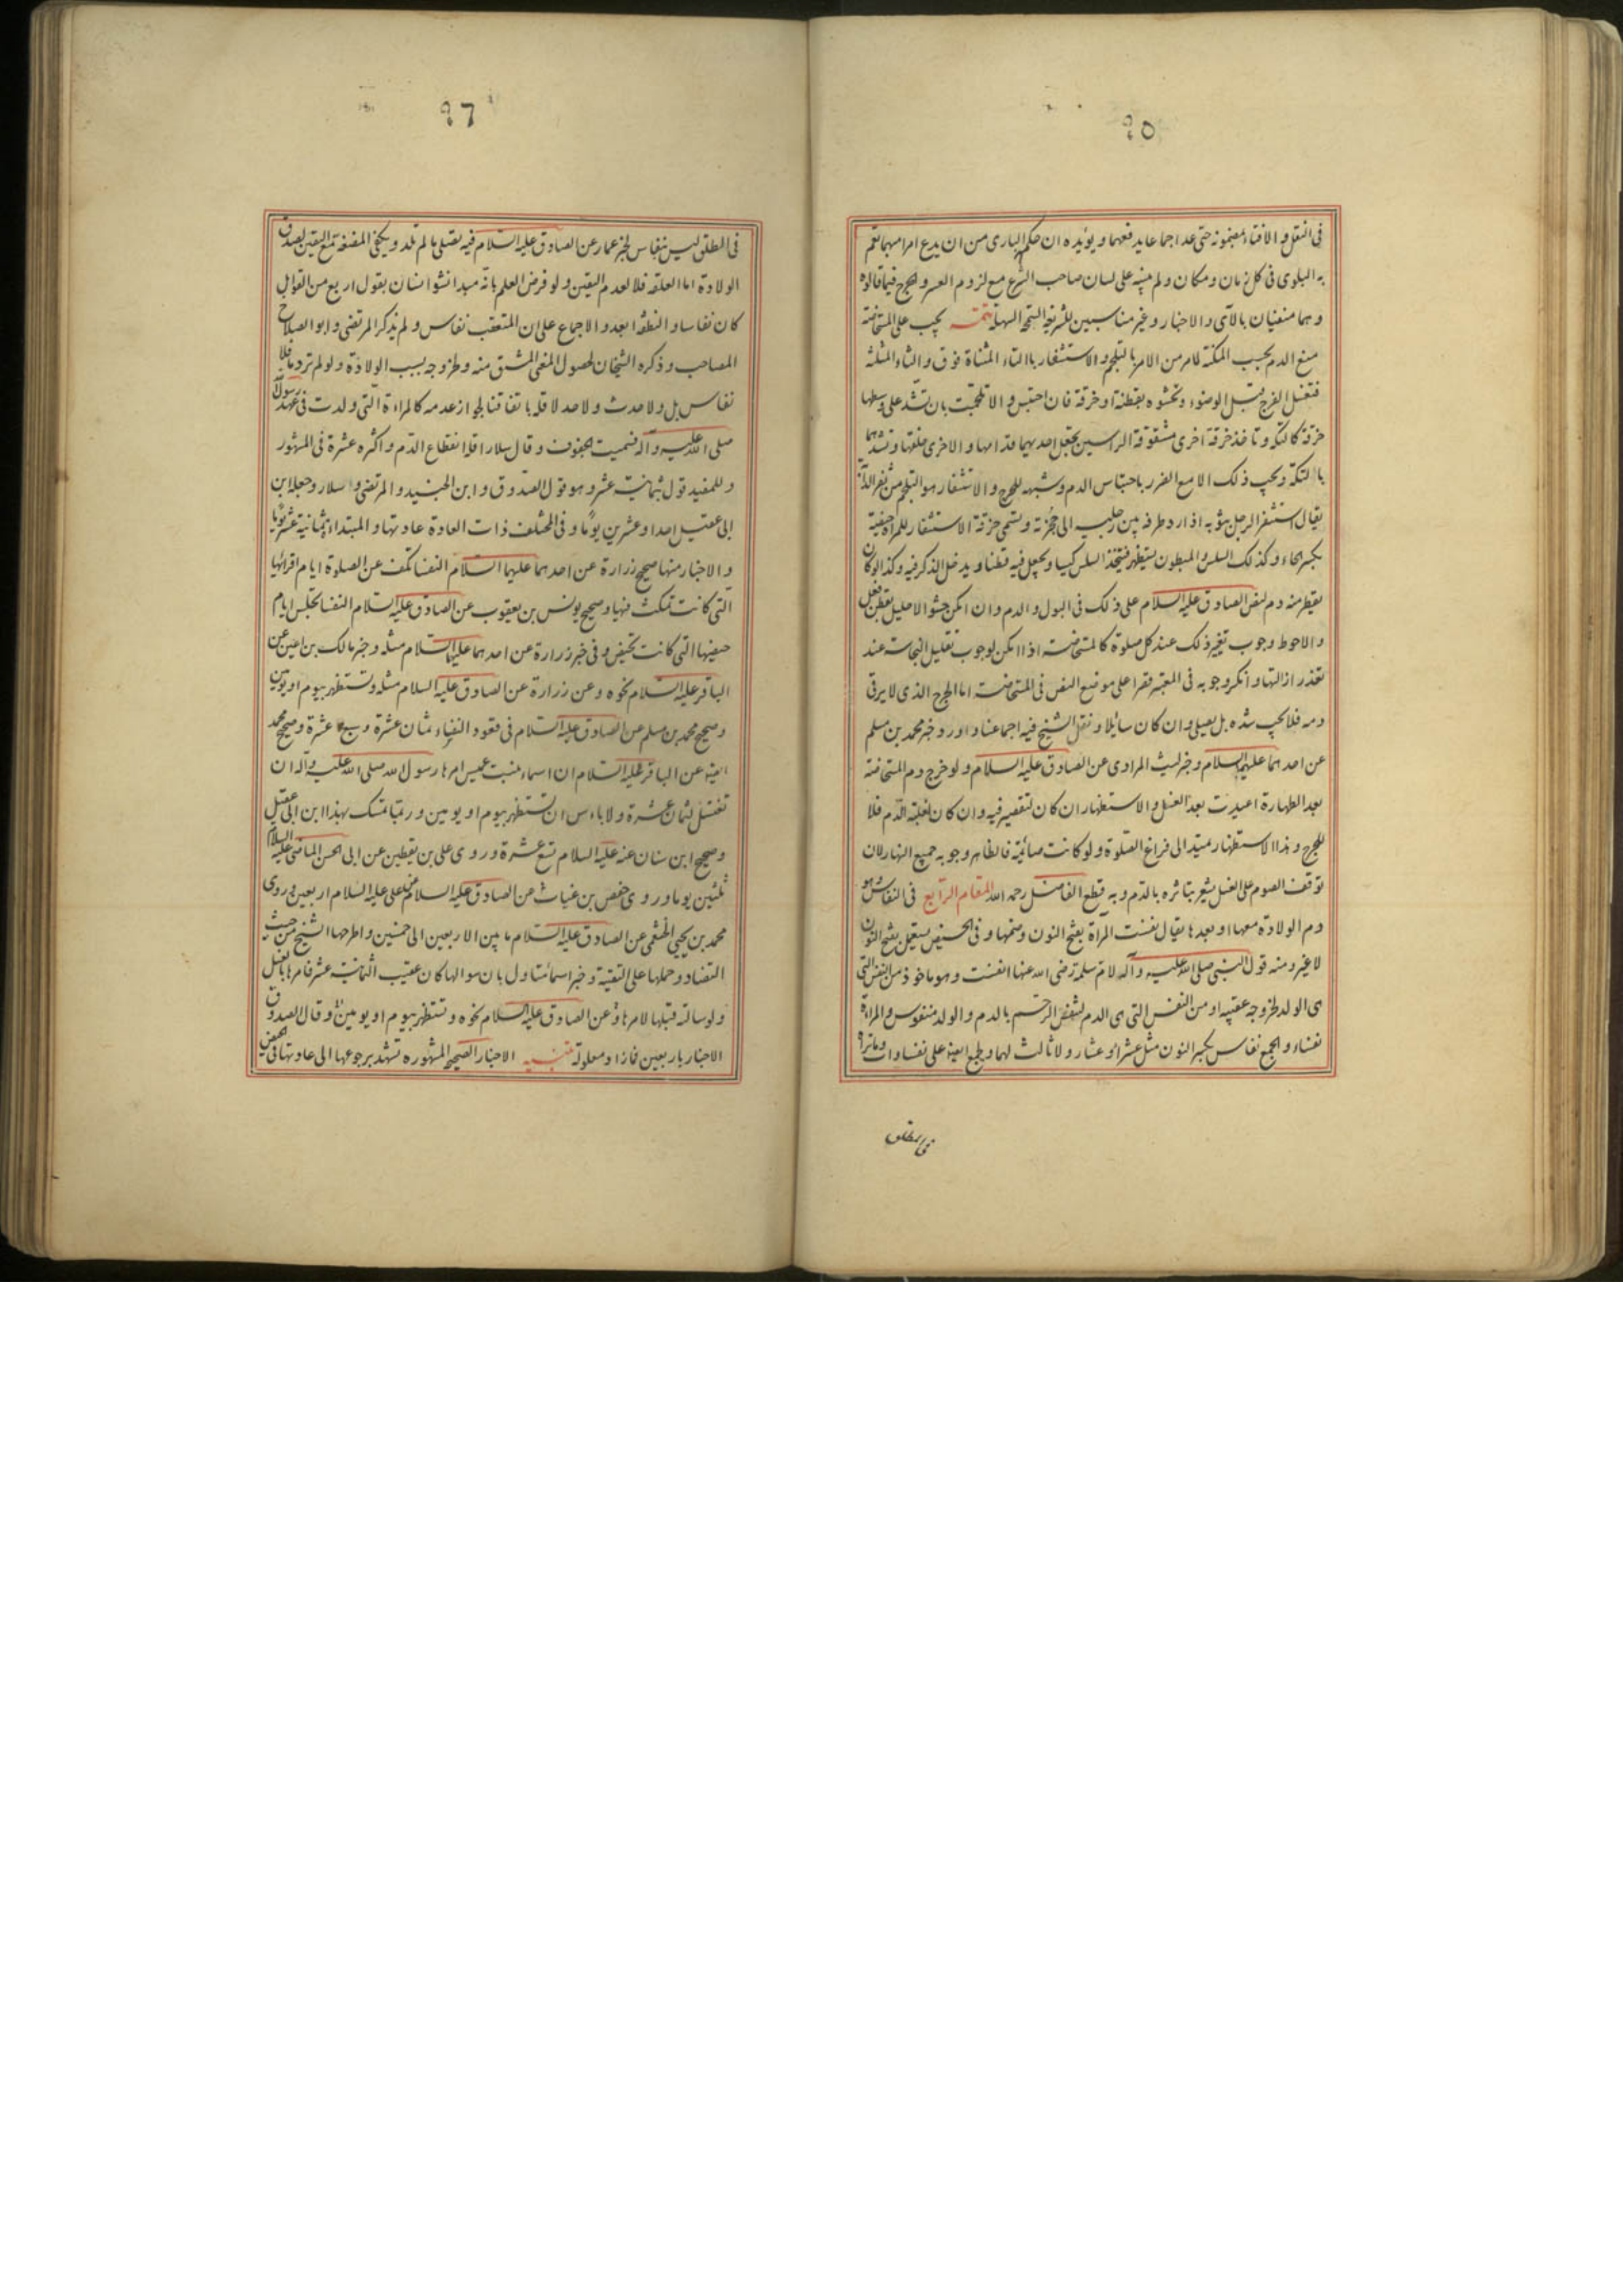 ٩٥
فى النقل و الافتاء بمضمونه حتى عد اجماعا يدفعهما و يؤيده ان حكم البارى من ان يدع امرا مبهما تعم
به البلوى فى كل زمان و مكان و لم يبينه على لسان صاحب الشرع مع لزوم العسر و الحرج فيما قالوه
و هما منفيان بالآى و الاخبار و غير مناسبين للشريعة السمحة السهلة تتمه يجب على المستحاضة
منع الدم بحسب المكنة لما مر من الامر بالتلجم و الاستثفار باالتاء المثناة فوق و الثاء المثلثة
فتغسل الفرج قبل الوضوء و تحشوه بقطنة او خرقة فان احتبس و الا تلجمت بان تشد على وسطها
خرقة كالتكة و تاخذ خرقة اخرى مشقوقة الراسين تجعل احديهما قدامها و الاخرى خلفها و تشدهما
باالتكة و يجب ذلك الا مع الضرر باحتباس الدم و شبهه للحرج و الاستثفار هو التلجم من ثفر الدابة
يقال استثفر الرجل بثوبه اذا رد طرفه بين رجليه الى حجزته و تسمى خرقة الاستثفار للمراة حيضية
بكسر الحاء و كذلك السلس و المبطون يستظهر فيتخذ السلس كيسا و يجعل فيه قطنا و يدخل الذكر فيه و كذا لو كان
يقطر منه دم لنص الصادق عليه السلام على ذلك فى البول و الدم و ان امكن حشو الاحليل بقطن فعل
و الاحوط وجوب تغيير ذلك عند كل صلوة كالمستحاضة اذا امكن لوجوب تقليل النجاسة عند
تعذر ازالتها و انكر وجوبه فى المعتبر قصرا على موضع النص فى المستحاضة اما الجرح الذى لا يرقى
دمه فلا يجب شده بل يصلى و ان كان سايلا و نقل الشيخ فيه اجماعنا و اورد خبر محمد بن مسلم
عن احدهما عليهما السلام و خبر ليث المرادى عن الصادق عليه السلام و لو خرج دم المستحاضة
بعد الطهارة اعيدت بعد الغسل و الاستظهار ان كان لتقصير فيه و ان كان لغلبة الدم فلا
للحرج و هذا الاستظهار يمتد الى فراغ الصلوة و لو كانت صائمة فالظاهر وجوبه جميع النهار لان
توقف الصوم على الغسل يشعر بتاثره بالدم و به قطع الفاضل رحمه الله المقام الرابع فى النفاس و هو
دم الولادة معها او بعدها يقال نفست المرأة بفتح النون و ضمها و فى الحيض يستعمل بفتح النون
لا غير و منه قول النبى صلى الله عليه و آله لام سلمة رضى الله عنها انفست و هو ماخوذ من النفس التى
هى الولد لخروجه عقيبه او من النفس التى هى الدم لتنفس الرحم بالدم و الولد منفوس و المراة
نفساء و الجمع نفاس بكسر النون مثل عشراء و عشار و لا ثالث لهما و يجمع ايضا على نفساوات
فى الطلق
٩٦
فى الطلق ليس بنفاس لخبر عمار عن الصادق عليه السلام فيه تصلى ما لم تلد و يكفى المضغة مع اليقين لصدق
الولادة اما العلقه فلا لعدم اليقين و لو فرض العلم بانه مبدا نشو انسان بقول اربع من القوابل
كان نفاسا و النطفة ابعد و الاجماع على ان المتعقب نفاس و لم يذكر المرتضى و ابو الصلاح
المصاحب و ذكره الشيخان لحصول المعنى المشتق منه و لخروجه بسبب الولادة و لو لم تر دما فلا
نفاس بل و لا حدث و لا حد لاقله باتفاقنا لجواز عدمه كالمراءة التى ولدت فى عهد رسول الله
صلى الله عليه و آله فسميت الجفوف و قال سلار اقله انقطاع الدم و اكثره عشرة فى المشهور
و للمفيد قول بثمانية عشر و هو قول الصدوق و ابن الجنيد و المرتضى و سلار و جعله ابن
ابى عقيل احدا و عشرين يوما و فى المختلف ذات العادة عادتها و المبتداءة ثمانية عشر يوما
و الاخبار منها صحيح زرارة عن احدهما عليهما السلام النفسا تكف عن الصلوة ايام اقرائها
التى كانت تمكث فيها و صحيح يونس بن يعقوب عن الصادق عليه السلام النفسا تجلس ايام
حيضها التى كانت تحيض و فى خبر زرارة عن احدهما عليهما السلام مثله و خبر مالك بن اعين عن
الباقر عليه السلام نحوه و عن زرارة عن الصادق عليه السلام مثله و تستظهر بيوم او يومين
و صحيح محمد بن مسلم عن الصادق عليه السلام فى قعود النفساء ثمان عشرة و سبع عشرة و صحيح محمد
ايضا عن الباقر عليه السلام ان اسماء بنت عميس امرها رسول الله صلى الله عليه و آله ان
تغتسل لثمان عشرة و لا باءس ان تستظهر بيوم او يومين و ربما تمسك بهذا ابن ابى عقيل
و صحيح ابن سنان عنه عليه السلام تسع عشرة و روى على بن يقطين عن ابى الحسن الماضى عليه السلام
ثلثين يوما و روى حفص بن غياث عن الصادق عليه السلام عن على عليه السلام اربعين و روى
محمد بن يحيى الخثعمى عن الصادق عليه السلام ما بين الاربعين الى خمسين و اطرحها الشيخ من حيث
التضاد و حملها على التقية و خبر اسما تتاول بان سوالها كان عقيب الثمانية عشر فامرها بالغسل
و لو سالته قبلها لامرها و عن الصادق عليه السلام نحوه و تستظهر بيوم او يومين و قال الصدوق
الاخبار باربعين فما زاد معلولة تنبيه الاخبار الصحيحة المشهوره تشهد برجوعها الى عادتها فى الحيض